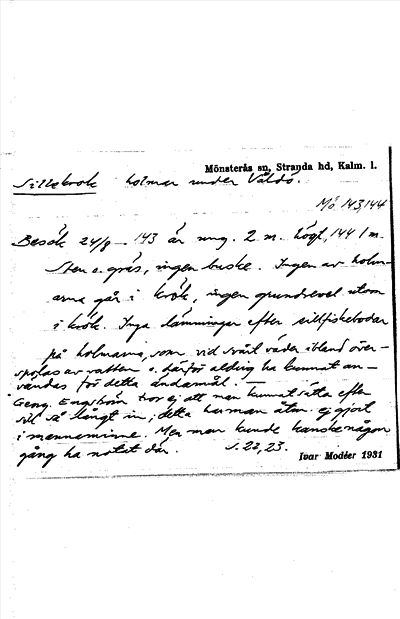 Mönsterås sn, Stranda hd, Kalm. l.
Sillekrok holmar under Valdö.
Mö 143,144
Besök 24/8 – 143 är ung. 2 m. högt, 144 1 m.
Sten o. gräs, ingen buske. Ingen av holm-
arna går i krok, ingen grundrevel utom
i krok. Inga lämningar efter sillfiskebodar
på holmarna, som vid svårt väder ibland över-
spolas av vatten o. därför aldrig ha kunnat an-
vändas för detta ändamål.
Geng. Engström tror ej att man kunnat sätta efter
sill så långt in; detta har man åtm. ej gjort
i mannaminne. Men man kunde kanske någon
gång ha notat där. S. 22, 23.
Ivar Modéer 1931